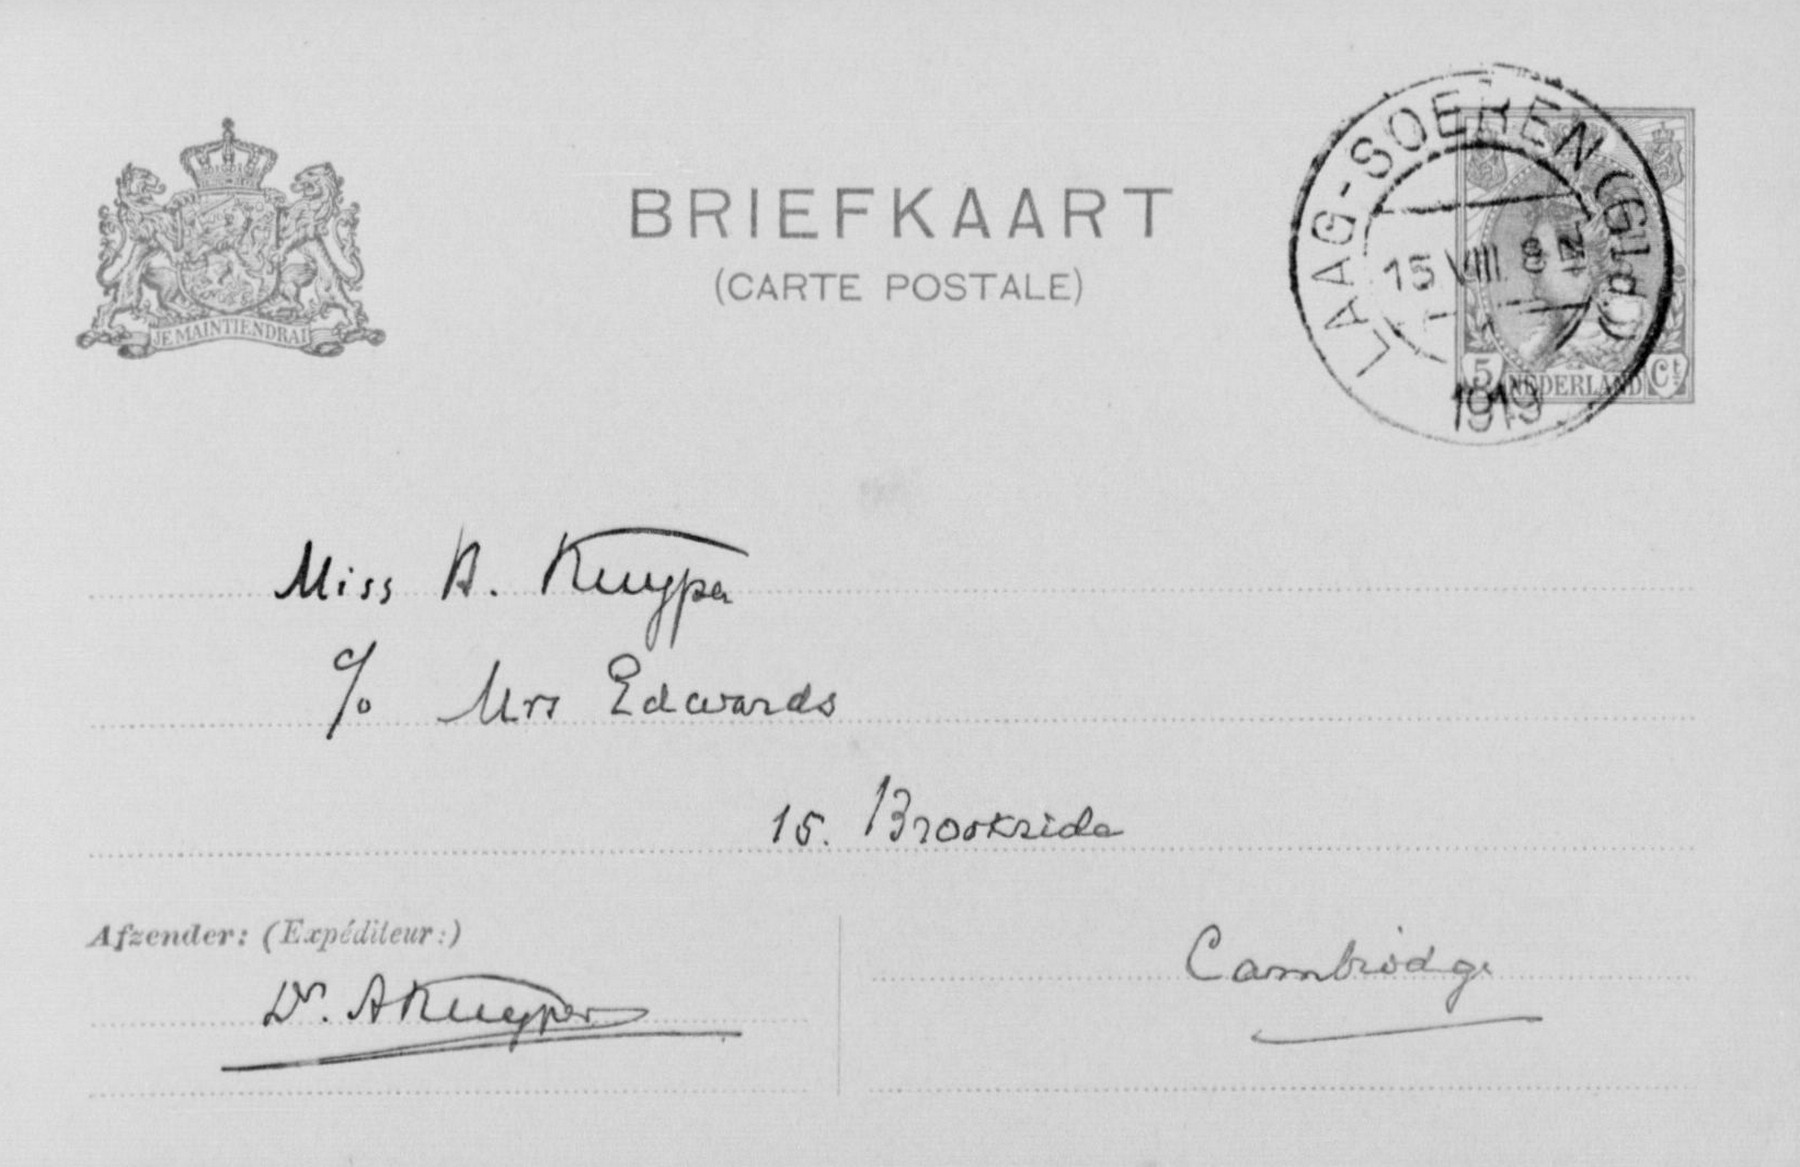 BRIEFKAART
(CARTE POSTALE)
JE MAINTIENDRAI
LAAG-SOEREN (Gld)
15 VIII 8
1919
5 NEDERLAND Ct
Miss A. Kuyper
c/o Mrs Edwards
15. Brookside
Cambridge
Afzender: (Expéditeur:)
Dr. A Kuyper